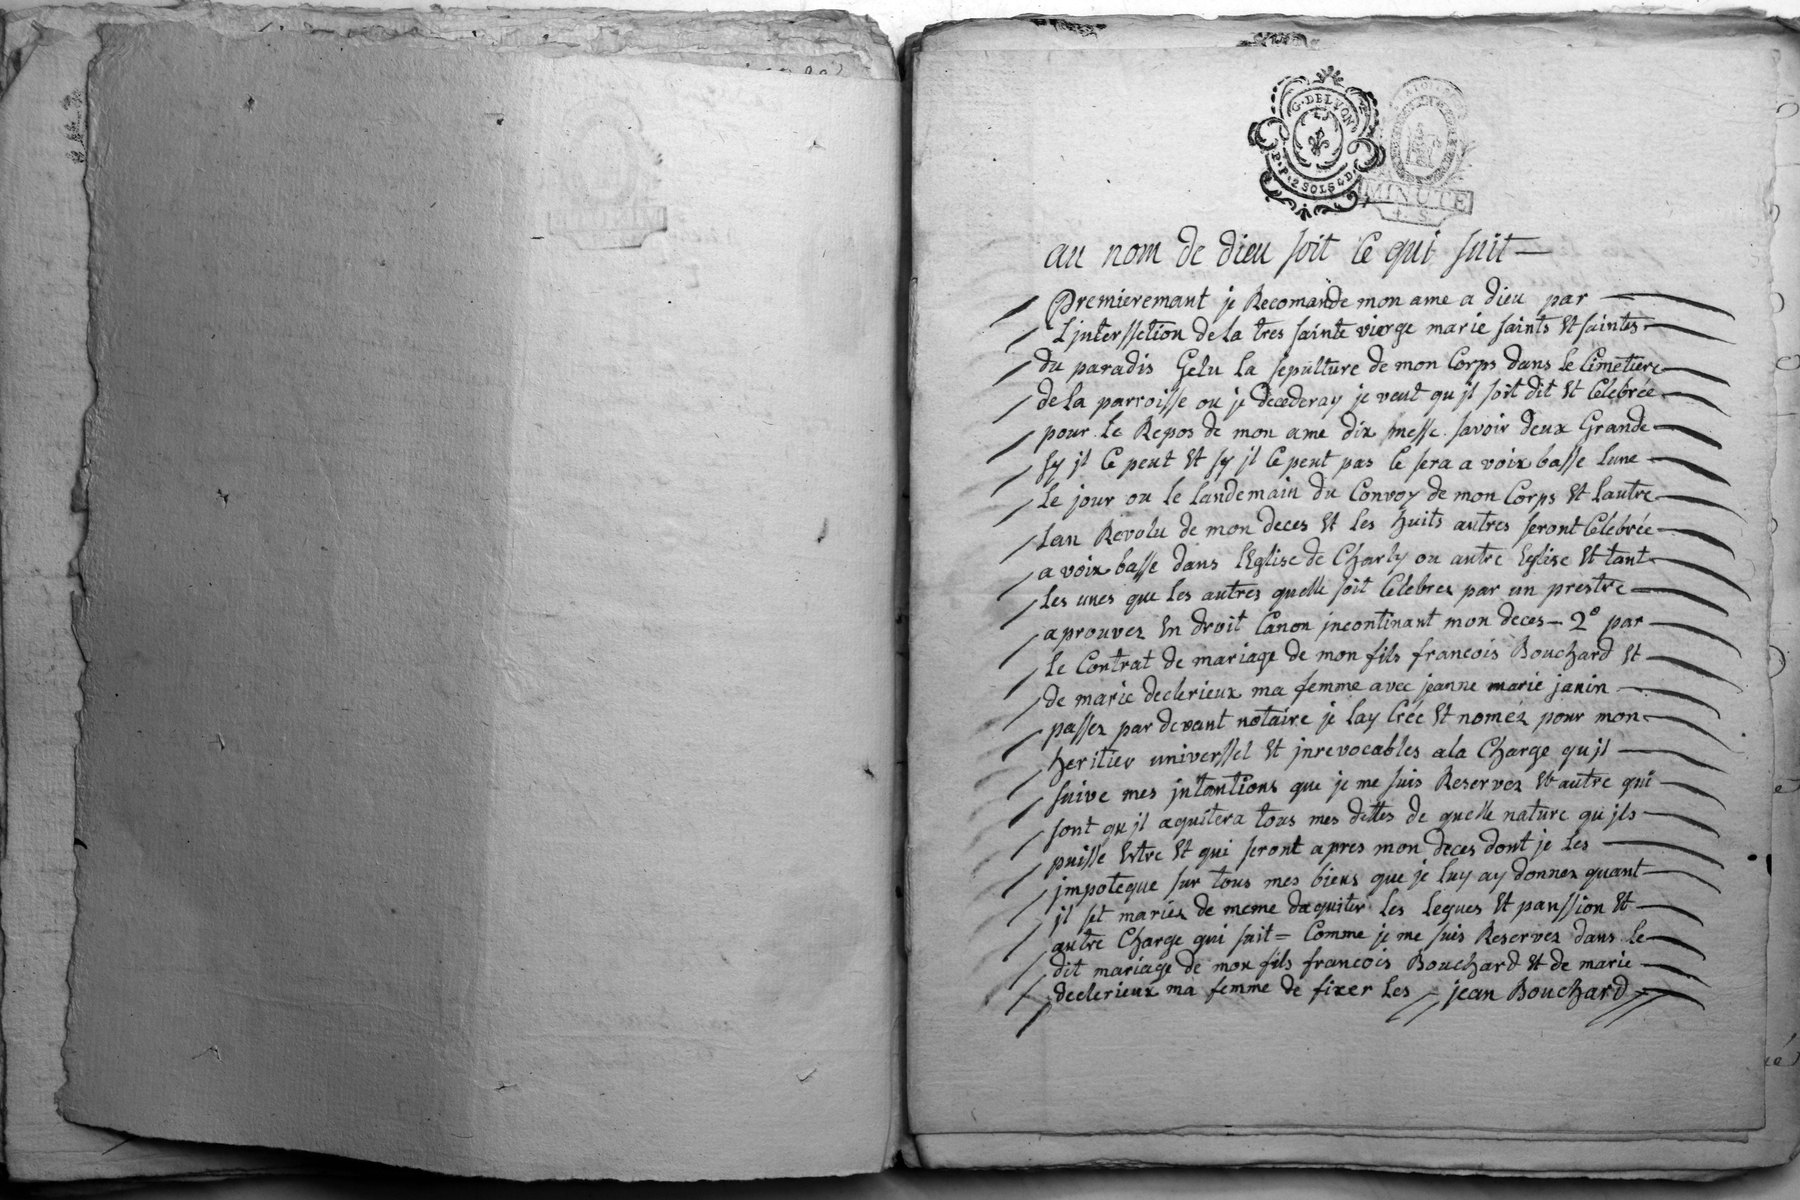 G. DE LYON
P. P. 2 SOLS 4 D.
MINUTE
au nom de dieu soit ce qui suit
Premieremant je Recomande mon ame a dieu par
Linterssetion de la tres sainte vierge marie saints Et saintes
du paradis Gelu la sepulture de mon Corps dans le Cimetiere
de la parroisse ou je decederay je veut qu jl soit dit Et Celebrée
pour le Repos de mon ame dix messe savoir deux Grande
sy jl Ce peut Et sy jl Ce peut pas Ce sera a voix basse lune
Le jour ou le landemain du Convoy de mon Corps Et lautre
Lan Revolu de mon deces Et les huits autres seront Celebrée
a voix basse dans lEglise de Charly ou autre Eglise Et tant
les unes que les autres quelle soit Celebrez par un prestre
aprouvez En droit Canon jncontinant mon deces - 2° par
le Contrat de mariage de mon fils francois Bouchard Et
de marie declerieux ma femme avec jeanne marie janin
passez par devant notaire je lay Créé Et nomez pour mon
heritier universsel Et jnrevocables a la Charge qu jl
suive mes jntantions que je me suis Reservez Et autre qui
sont qu jl aquitera tous mes dettes de quelle nature qu jls
puisse Estre Et qui seront apres mon deces dont je les
jmpoteque sur tous mes biens que je luy ay donnez quant
jl set mariez de meme daquiter les legues Et panssion Et
autre Charge qui suit = Comme je me suis Reservez dans le
dit mariage de mon fils francois Bouchard Et de marie
declerieux ma femme de fixer les jean Bouchard